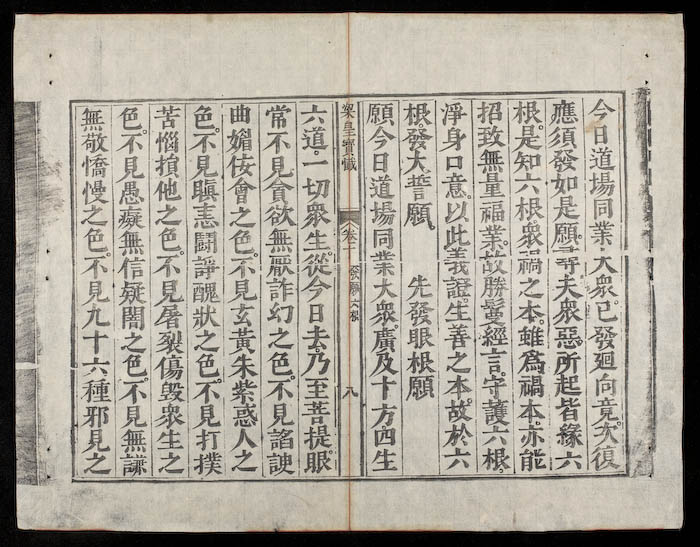 今日道場同業大衆。已發廻向竟。次復
應須發如是願。尋夫衆惡所起皆緣六
根。是知六根衆禍之本。雖爲禍本。亦能
招致無量福業。故勝鬘經言。守護六根。
淨身口意。以此義證。生善之本。故於六
根發大誓願　先發眼根願
願今日道場同業大衆。廣及十方四生
梁皇寶懺　卷十　發願六根　八
六道。一切衆生。從今日去。乃至菩提。眼
常不見貪欲無厭詐幻之色。不見諂諛
曲媚佞會之色。不見玄黃朱紫惑人之
色。不見瞋恚鬪諍醜狀之色。不見打撲
苦惱損他之色。不見屠裂傷毀衆生之
色。不見愚癡無信疑闇之色。不見無謙
無敬憍慢之色。不見九十六種邪見之